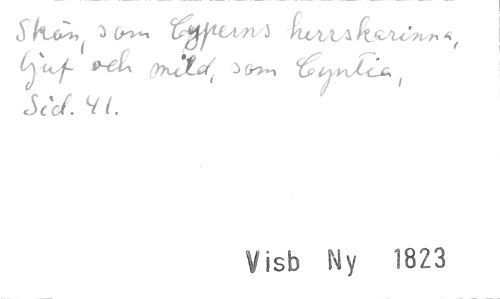 Skön, som Cyperns herrskarinna,
ljuf och mild, som Cyntia,
Sid. 41.
Visb Ny 1823